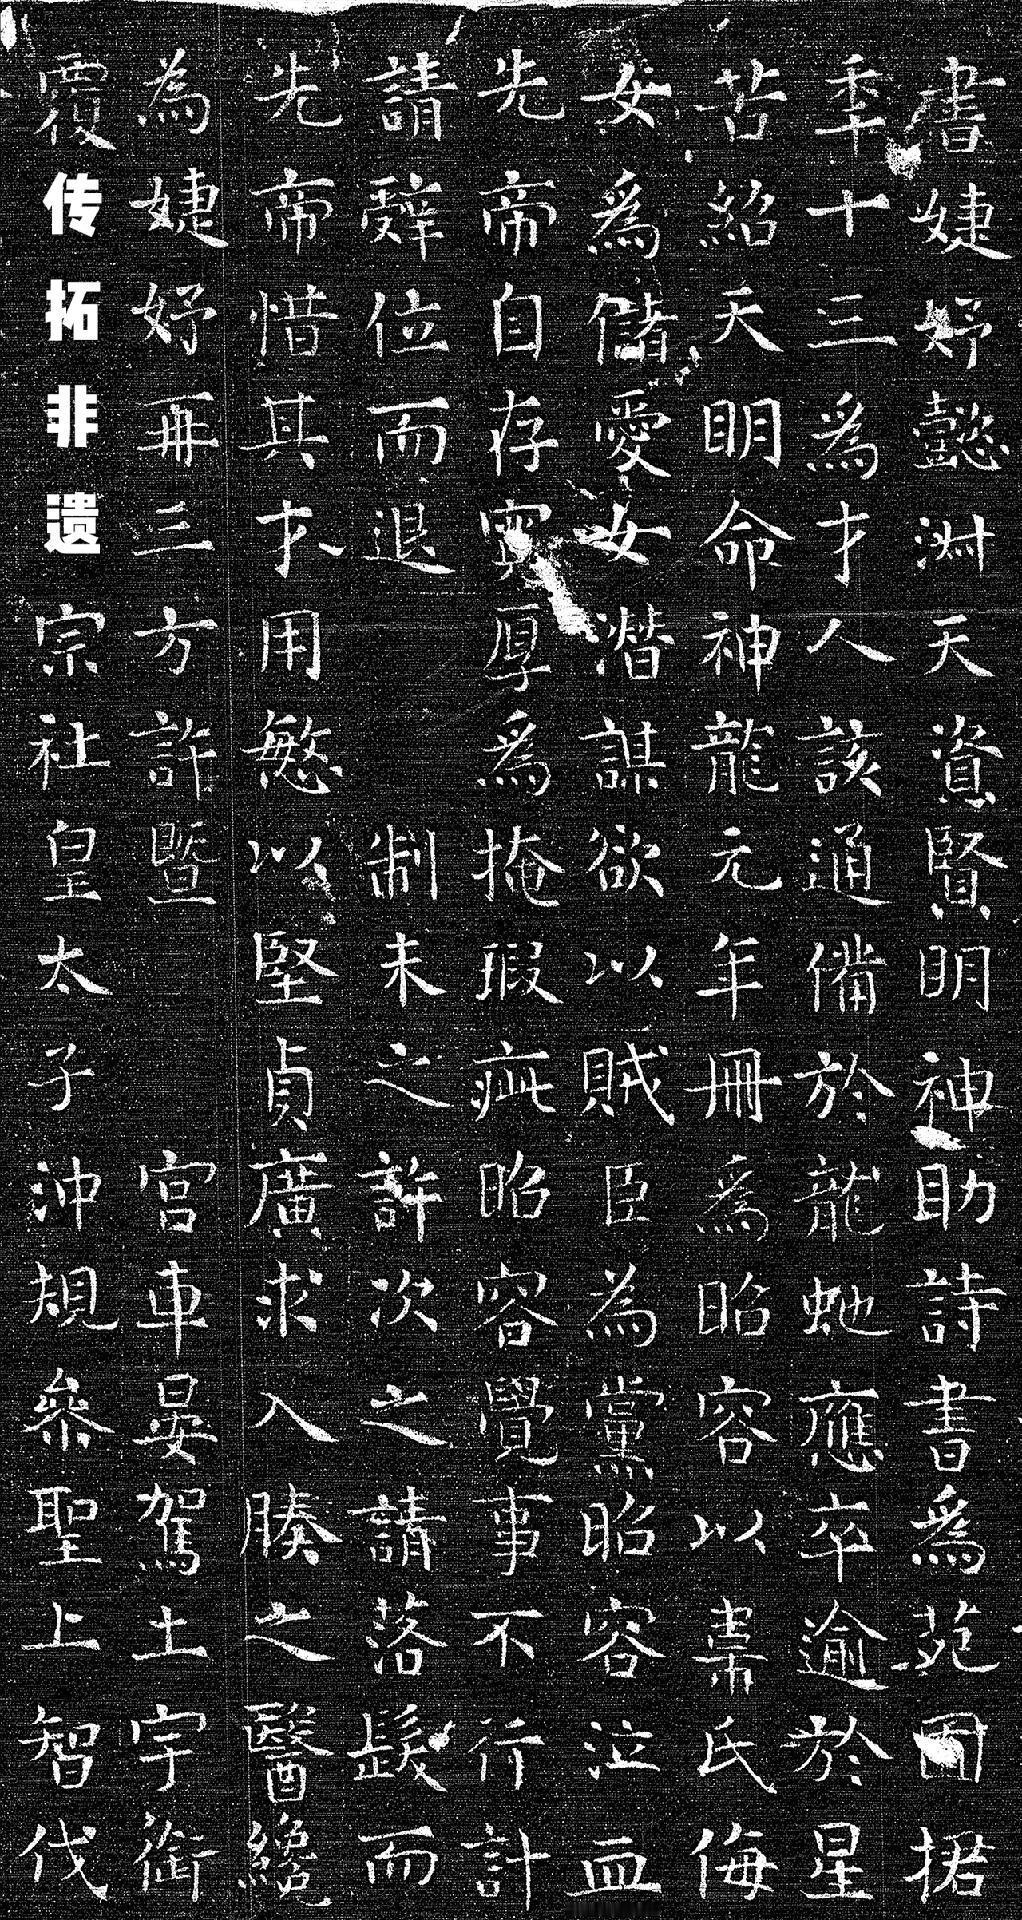 書婕妤懿淑天資賢明神助詩書爲苑囿捃
年十三爲才人該通備於龍蛇應卒逾於星
苦紹天明命神龍元年冊為昭容以韋氏侮
女爲儲愛女潛謀欲以賊臣為黨昭容泣血
先帝自存寬厚爲掩瑕疵昭容覺事不行計
請辭位而退 制未之許次之請落髮而
先帝惜其才用慜以堅貞廣求入腠之醫纔
為婕妤再三方許暨 宮車晏駕土宇銜
覆 宗社皇太子沖規參聖上智伐
传拓非遗